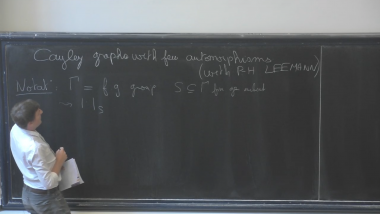 Cayley graphs with few automorphisms
(with P.H. LEEMANN)
Notat: Γ = f g group S ⊆ Γ
| |_S